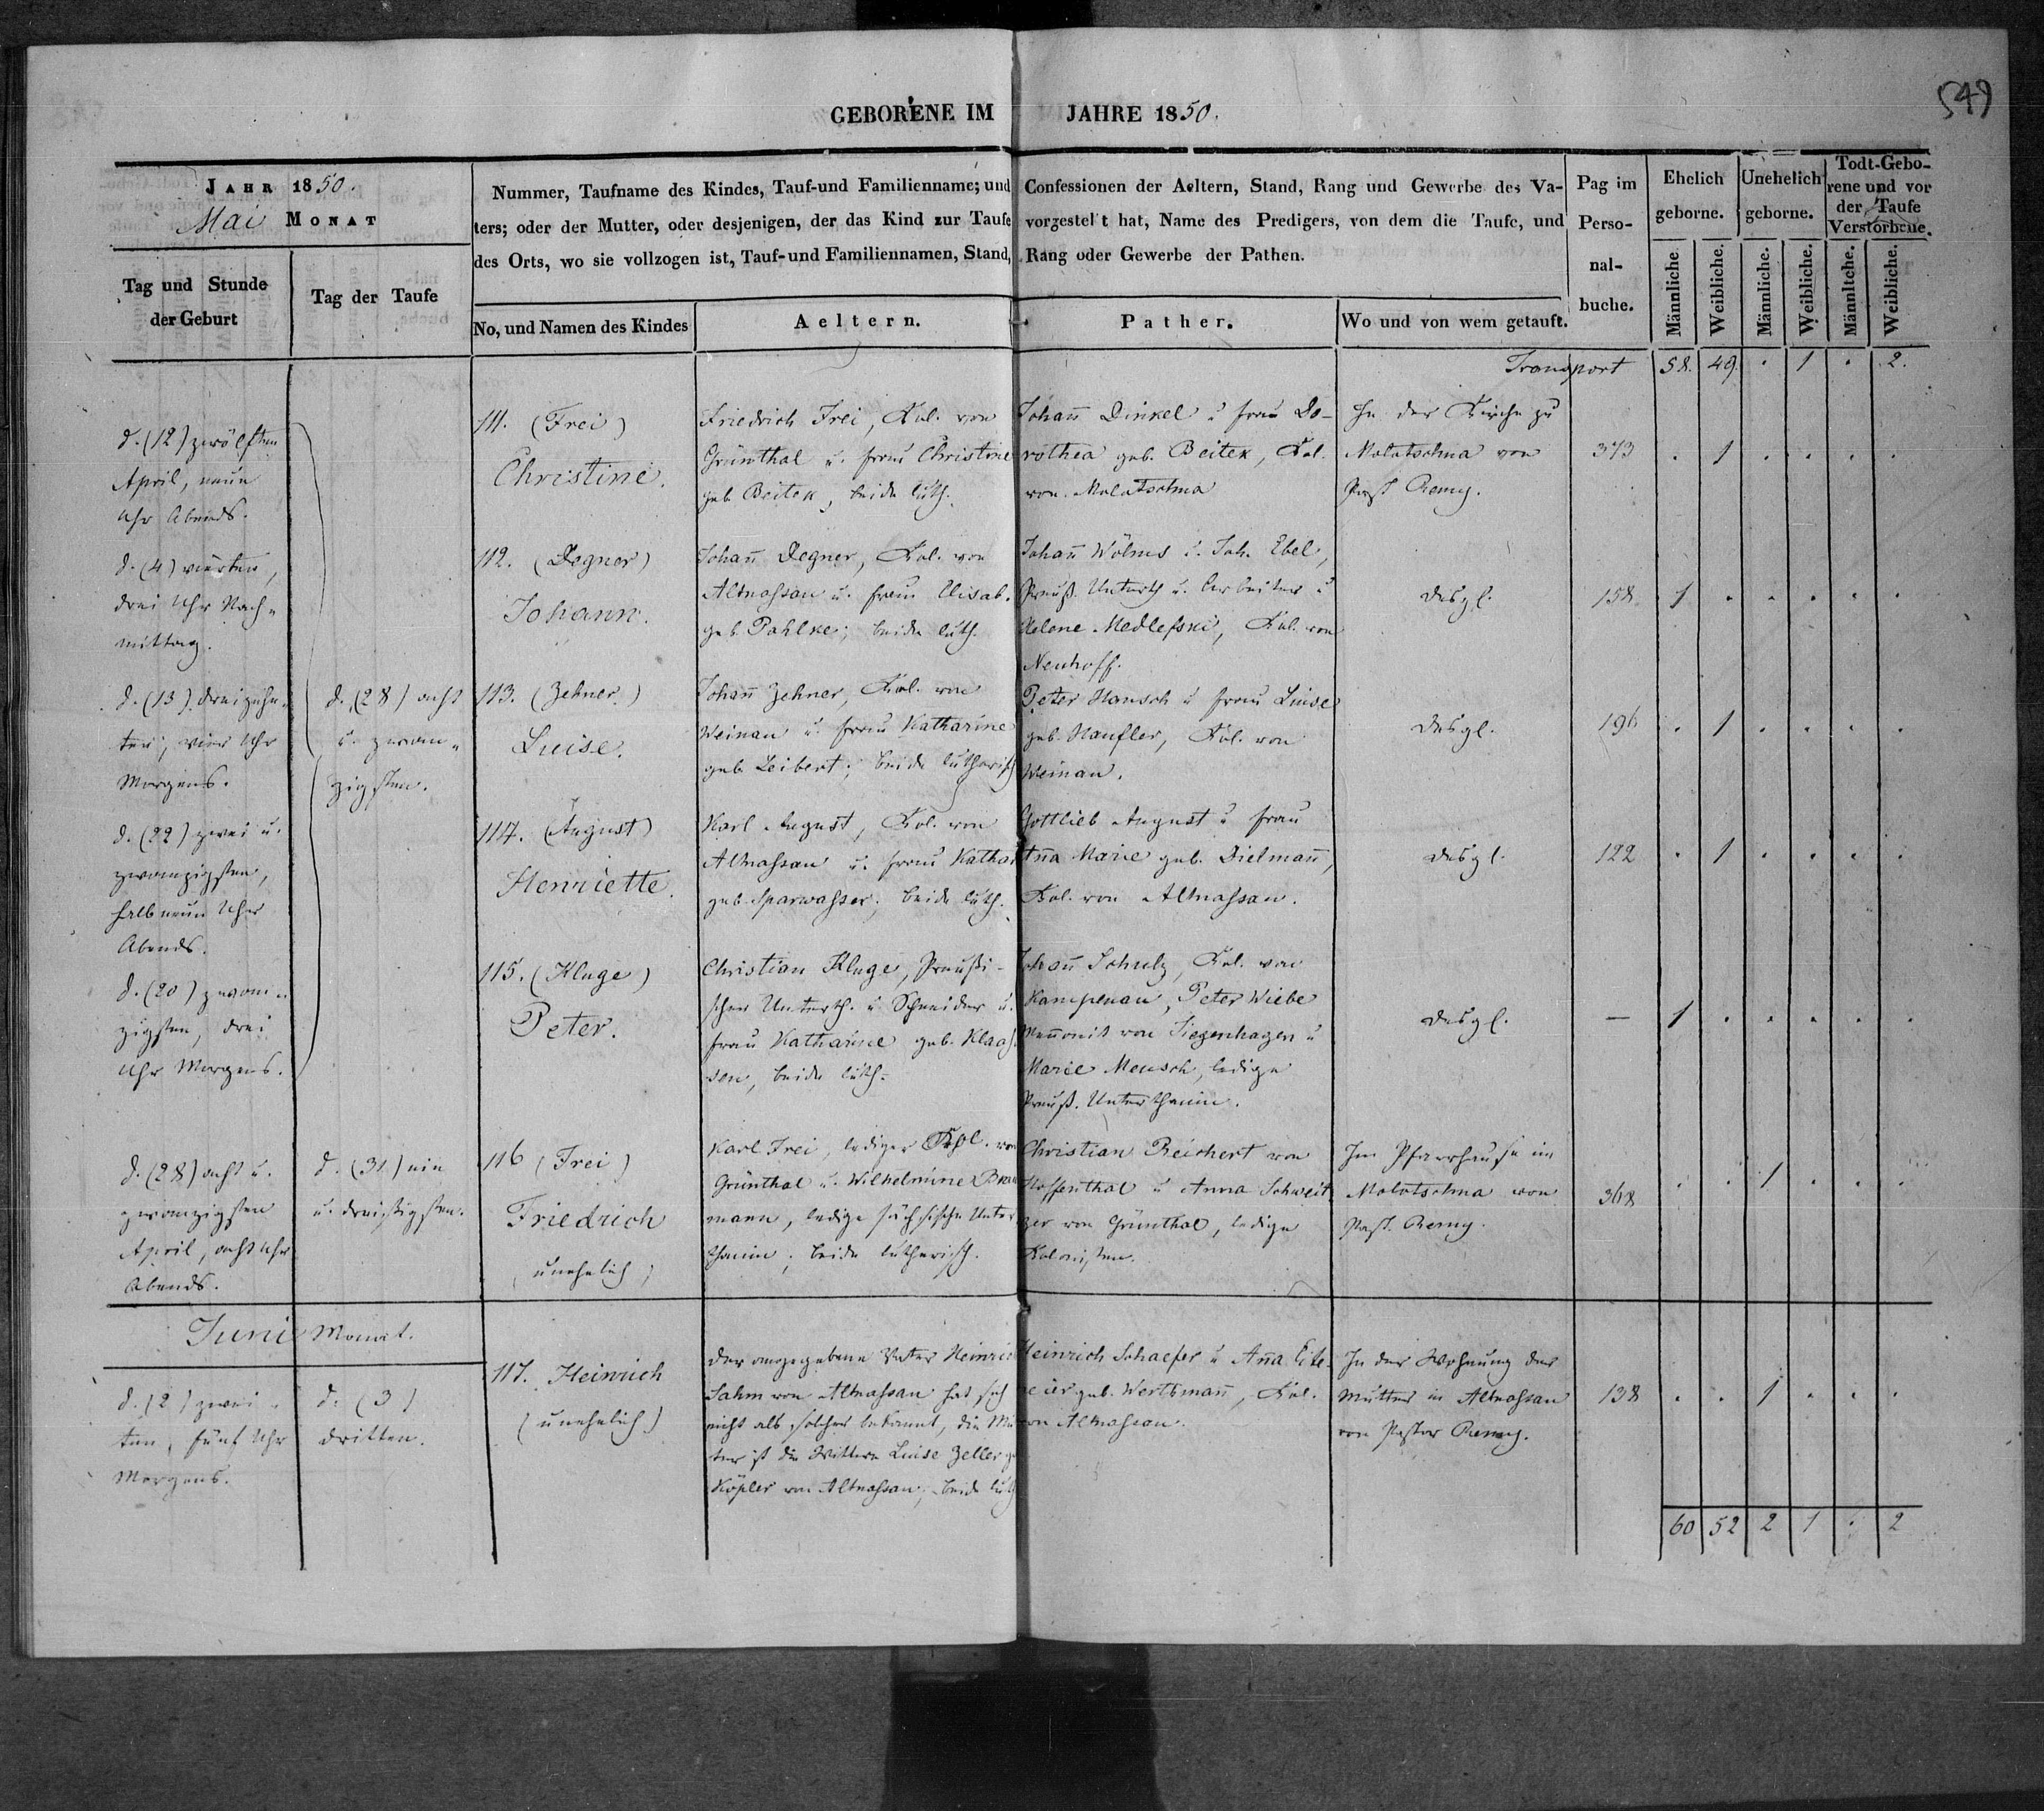 549
GEBORENE IM JAHRE 1850.
JAHR 1850.
Mai MONAT
Tag und Stunde
der Geburt
Tag der Taufe
Nummer, Taufname des Kindes, Tauf-und Familienname; und Confessionen der Aeltern, Stand, Rang und Gewerbe des Va-
ters; oder der Mutter, oder desjenigen, der das Kind zur Taufe vorgestel't hat, Name des Predigers, von dem die Taufe, und
des Orts, wo sie vollzogen ist, Tauf-und Familiennamen, Stand, Rang oder Gewerbe der Pathen.
No, und Namen des Kindes
Aeltern.
Pather.
Wo und von wem getauft.
Pag im
Perso-
nal-
buche.
Ehelich
geborne.
Unehelich
geborne.
Todt-Gebo-
rene und vor
der Taufe
Verstorbene.
Männliche
Weibliche.
Männliche.
Weibliche.
Männliche.
Weibliche.
Transport 58. 49. . 1 . 2.
d. (12) zwölften
April, neun
Uhr Abends.
111. (Frei)
Christine.
Friedrich Frei, Kol. von
Grünthal u. Frau Christine
geb. Beitek, beide luth.
Johañ Dinkel u Frau Do-
rothea geb. Beitek, Kol.
von Molotschna
In der Kirche zu
Molotschna von
Past Remy.
373 . 1 . . . .
d. (4) vierten,
drei Uhr Nach-
mittag.
112. (Degner)
Johann.
Johañ Degner, Kol. von
Altnassau u. Frau Elisab.
geb. Pahlke; beide luth.
Johañ Wölms u. Joh. Ebel,
Preuß. Unterth u. Arbeiter u
Helene Medlefski, Kol. von
Neuhoff.
desgl.
158. 1 . . . . .
d. (13) dreizehn-
ten, vier Uhr
Morgens.
d. (28) acht
u. zwan-
zigsten.
113. (Zehner.)
Luise.
Johañ Zehner, Kol. von
Weinau u. Frau Katharine
geb. Leibert; beide lutherisch
Peter Hansch u Frau Luise
geb. Haufler, Kol. von
Weinau.
desgl.
196 . 1 . . . .
d. (22) zwei u.
zwanzigsten,
halb neun Uhr
Abends.
114. (August)
Henriette.
Karl August, Kol. von
Altnassau u. Frau Kathar
geb. Sparwasser; beide luth.
Gottlieb August u Frau
Aña Marie geb. Dielmañ,
Kol. von Altnassau.
desgl.
122 . 1 . . . .
d. (20) zwan-
zigsten, drei
Uhr Morgens.
115. (Kluge)
Peter.
Christian Kluge, Preußi-
scher Unterth. u Schneider u.
Frau Katharine geb. Klaas-
sen, beide luth.
Johañ Schulz, Kol. von
Kampenau, Peter Wiebe
Meñonit von Siegenhagen u
Marie Mensch, ledige
Preuß. Unterthanin.
desgl.
— 1 . . . . .
d. (28) acht u.
zwanzigsten
April, acht Uhr
Abends.
d. (31) ein
u. dreißigsten.
116 (Frei)
Friedrich
(unehelich)
Karl Frei, lediger Kol. von
Grünthal u. Wilhelmine
mann, ledige sächsische Unter
thanin; beide lutherisch.
Christian Reichert von
Hoffenthal u Anna Schweit
zer von Grünthal, ledige
Kolonisten.
Im Pfarrhause in
Molotschna von
Past. Remy.
368 . . 1 . . .
Juni Monat.
d. (2) zwei-
ten, fünf Uhr
Morgens.
d. (3)
dritten.
117. Heinrich
(unehelich)
Der angegebene Vater Heinrich
Sahm von Altnassau hat sich
nicht als solcher bekannt, die Mut
ter ist die Wittwe Luise Zeller
Köpler von Altnassau; beide luth
Heinrich Schaefer u Aña
geb. Werthmañ, Kol.
von Altnassau.
In der Wohnung der
Mutter in Altnassau
von Pastor Remy.
138 . . 1 . . .
60 52 2 1 . 2